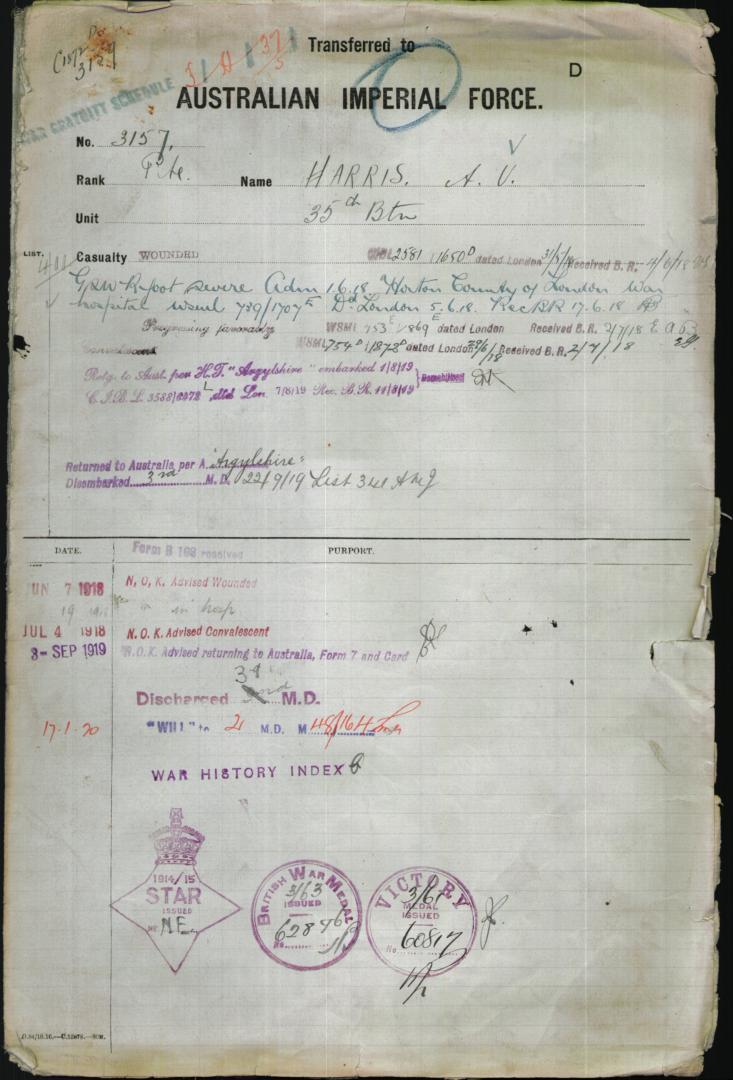 Transferred to
D
AUSTRALIAN IMPERIAL FORCE.
WAR GRATUITY SCHEDULE
No. 3157.
Rank Pte. Name HARRIS. A. V.
Unit 35th Btn
LIST.
Casualty WOUNDED 2581 1650D dated London 31/5/18 Received B. R. 4/6/18
GSW R foot severe Adm 1.6.18 Horton County of London War
hospital WSML 739/1707E Dd London 5.6.18. Rec BR 17.6.18
Progressing favorably WSML 753 1869E dated London Received B. R. 2/7/18
Convalescent WSML 754D 1872D dated London 29/6/18 Received B. R. 2/7/18
Retg. to Aust. per H.T. "Argyllshire" embarked 1/8/19
C.I.B.L. 3588 dtd Lon. 7/8/19 Rec. B.R. 11/8/19
Returned to Australia, per A. "Argyllshire"
Disembarked 3rd M.D. 22/9/19 List
DATE. PURPORT.
Form B 103 received
JUN 7 1918 N. O. K. Advised Wounded
19 " " in hosp
JUL 4 1918 N. O. K. Advised Convalescent
3- SEP 1919 N. O. K. Advised returning to Australia, Form 7 and Card
Discharged 3rd 2nd M.D.
17-1-20 "WILL" to 2 M.D. M 48/164
WAR HISTORY INDEX
1914/15
STAR
ISSUED
No NE
BRITISH WAR MEDAL
3/63
ISSUED
No. 62896
VICTORY
MEDAL
3/61
ISSUED
No 60817
D.84/10.16.—C.12678.—50M.